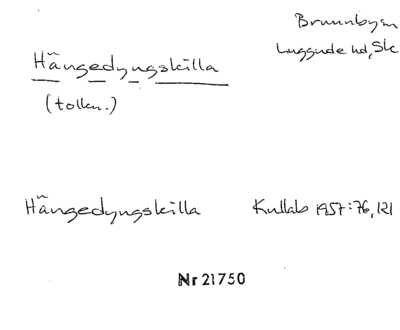 Brunnbysn
Luggude hd, Sk
Hängedyngskilla
(tolkn.)
Hängedyngskilla Kullab 1957:76, 121
Nr 21750